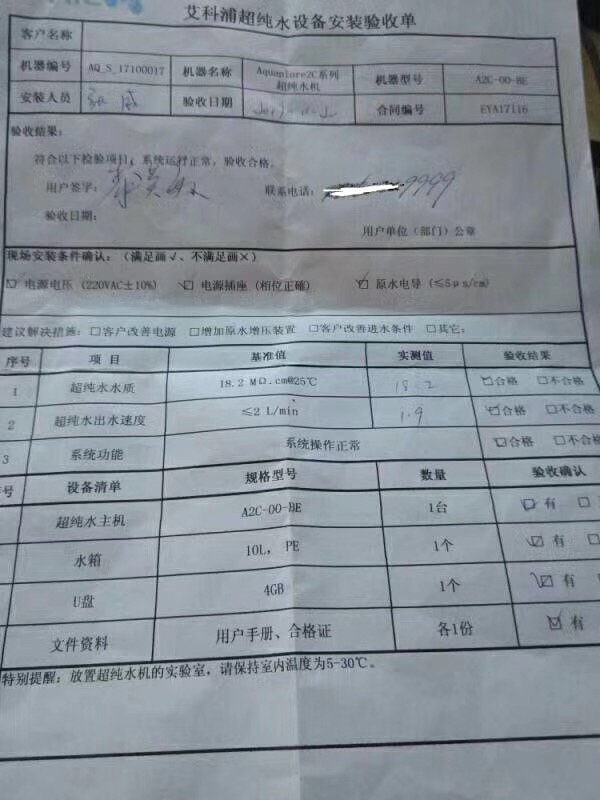 艾科浦超纯水设备安装验收单
客户名称
机器编号 AQ_S_17100017 机器名称 Aquaplore2C系列超纯水机 机器型号 A2C-00-BE
安装人员 验收日期 合同编号 EYA17116
验收结果:
符合以下检验项目,系统运行正常,验收合格。
用户签字: 联系电话: 9999
验收日期: 用户单位(部门)公章
现场安装条件确认:(满足画√、不满足画×)
☑ 电源电压 (220VAC±10%) ☑ 电源插座 (相位正确) ☑ 原水电导 (≤5μs/cm)
建议解决措施: □客户改善电源 □增加原水增压装置 □客户改善进水条件 □其它:
序号 项目 基准值 实测值 验收结果
1 超纯水水质 18.2 MΩ.cm@25℃ 18.2 ☑合格 □不合格
2 超纯水出水速度 ≤2 L/min 1.9 ☑合格 □不合格
3 系统功能 系统操作正常 ☑合格 □不合格
序号 设备清单 规格型号 数量 验收确认
超纯水主机 A2C-00-BE 1台 ☑ 有 □
水箱 10L, PE 1个 ☑ 有 □
U盘 4GB 1个 ☑ 有
文件资料 用户手册、合格证 各1份 ☑ 有
特别提醒:放置超纯水机的实验室,请保持室内温度为5-30℃。